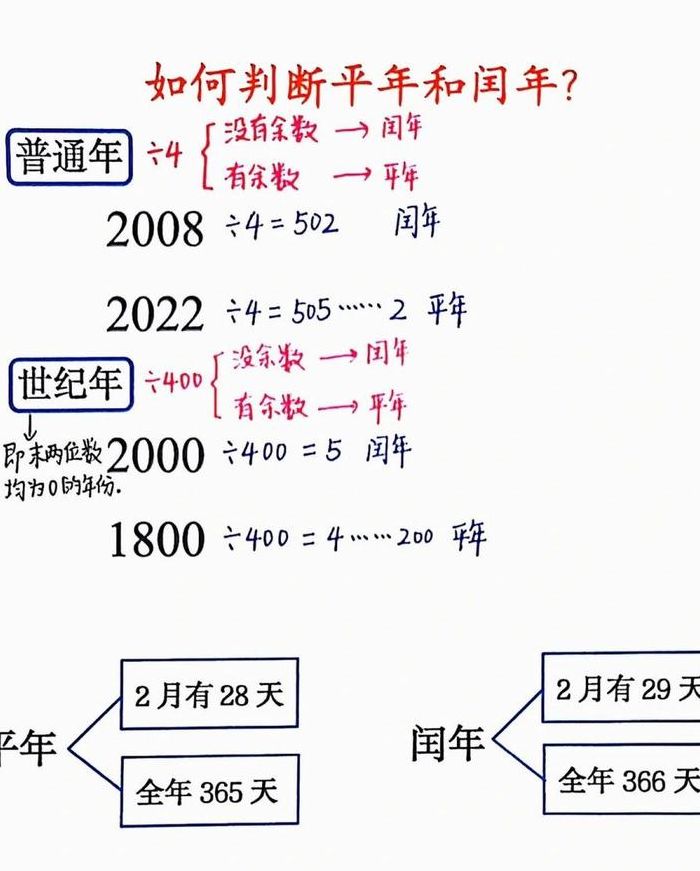 如何判断平年和闰年?
普通年 ÷4 { 没有余数 → 闰年
有余数 → 平年
2008 ÷4 = 502 闰年
2022 ÷4 = 505 …… 2 平年
世纪年 ÷400 { 没余数 → 闰年
有余数 → 平年
↓
即末两位数
均为0的年份.
2000 ÷400 = 5 闰年
1800 ÷400 = 4 …… 200 平年
平年
2月有28天
全年365天
闰年
2月有29天
全年366天